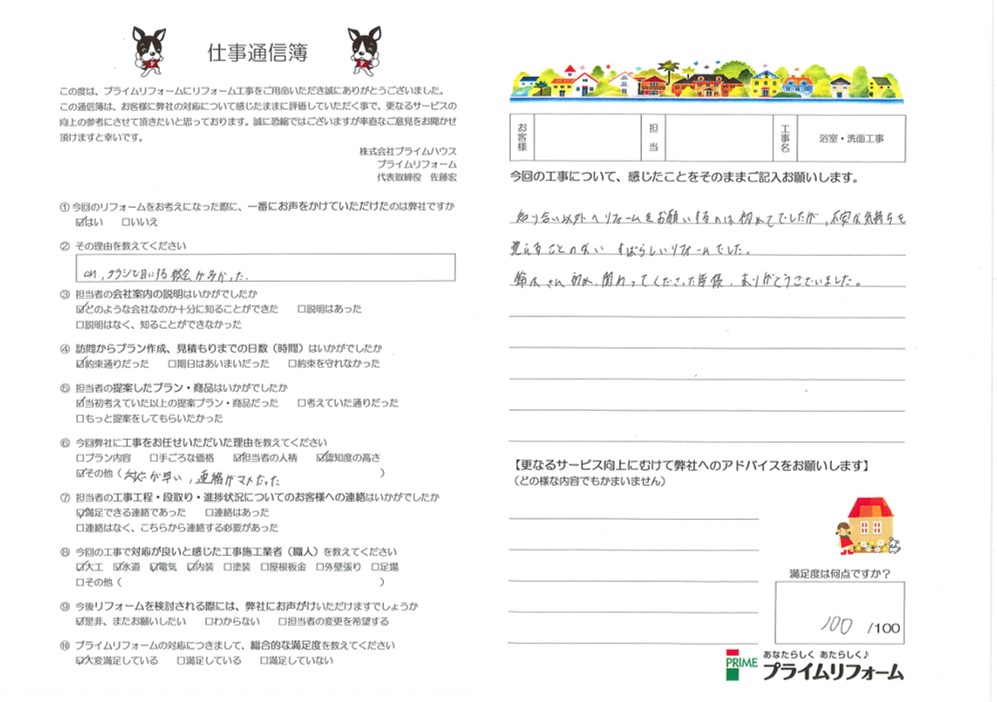 仕事通信簿
この度は、プライムリフォームにリフォーム工事をご用命いただき誠にありがとうございました。
この通信簿は、お客様に弊社の対応について感じたままに評価していただく事で、更なるサービスの
向上の参考にさせて頂きたいと思っております。誠に恐縮ではございますが率直なご意見をお聞かせ
頂けますと幸いです。
株式会社プライムハウス
プライムリフォーム
代表取締役 佐藤宏
① 今回のリフォームをお考えになった際に、一番にお声をかけていただけたのは弊社ですか
☑はい □いいえ
② その理由を教えてください
CM、チラシで目にする機会が多かった。
③ 担当者の会社案内の説明はいかがでしたか
☑どのような会社なのか十分に知ることができた □説明はあった
□説明はなく、知ることができなかった
④ 訪問からプラン作成、見積もりまでの日数（時間）はいかがでしたか
☑約束通りだった □期日はあいまいだった □約束を守れなかった
⑤ 担当者の提案したプラン・商品はいかがでしたか
☑当初考えていた以上の提案プラン・商品だった □考えていた通りだった
□もっと提案をしてもらいたかった
⑥ 今回弊社に工事をお任せいただいた理由を教えてください
□プラン内容 □手ごろな価格 ☑担当者の人柄 ☑認知度の高さ
☑その他（対応が早い、連絡がマメだった）
⑦ 担当者の工事工程・段取り・進捗状況についてのお客様への連絡はいかがでしたか
☑満足できる連絡であった □連絡はあった
□連絡はなく、こちらから連絡する必要があった
⑧ 今回の工事で対応が良いと感じた工事施工業者（職人）を教えてください
☑大工 ☑水道 ☑電気 ☑内装 □塗装 □屋根板金 □外壁張り □足場
□その他（ ）
⑨ 今後リフォームを検討される際には、弊社にお声がけいただけますでしょうか
☑是非、またお願いしたい □わからない □担当者の変更を希望する
⑩ プライムリフォームの対応につきまして、総合的な満足度を教えてください
☑大変満足している □満足している □満足していない
お客様 担当 工事名 浴室・洗面工事
今回の工事について、感じたことをそのままご記入お願いします。
知り合い以外へリフォームをお願いするのは初めてでしたが、不安な気持ちを
覚えることのない すばらしいリフォームでした。
鈴木さん初め、関わってくださった皆様、ありがとうございました。
【更なるサービス向上にむけて弊社へのアドバイスをお願いします】
（どの様な内容でもかまいません）
満足度は何点ですか？
100 /100
PRIME あなたらしく あたらしく♪
プライムリフォーム